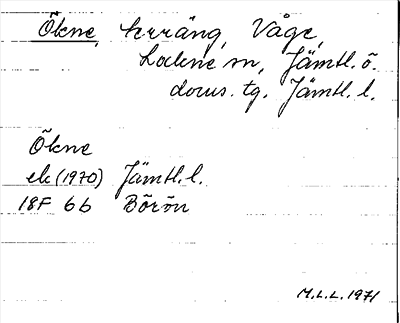 Ökne, terräng, Våge,
Lockne sn, Jämtl. ö.
doms. tg. Jämtl. l.
Ökne
ek (1970) Jämtl. l.
18F 6b Börön
M.L.L. 1971